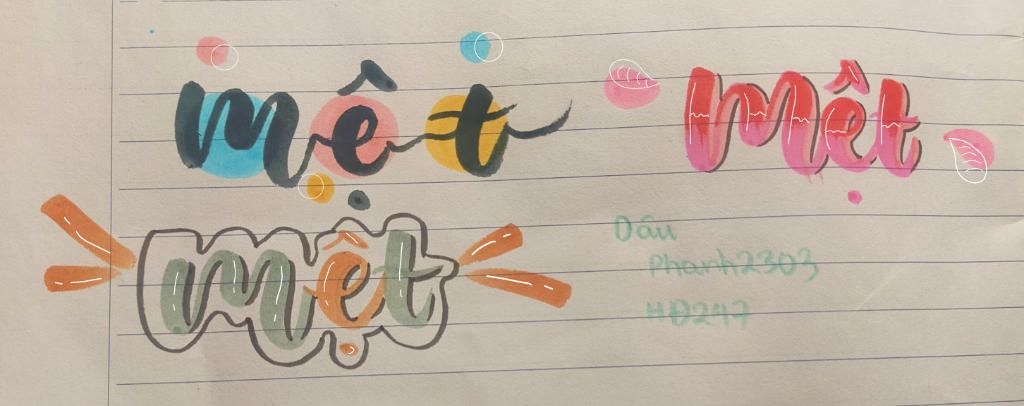 mệt
mệt
mệt
Dâu
Phanh2303
HĐ247